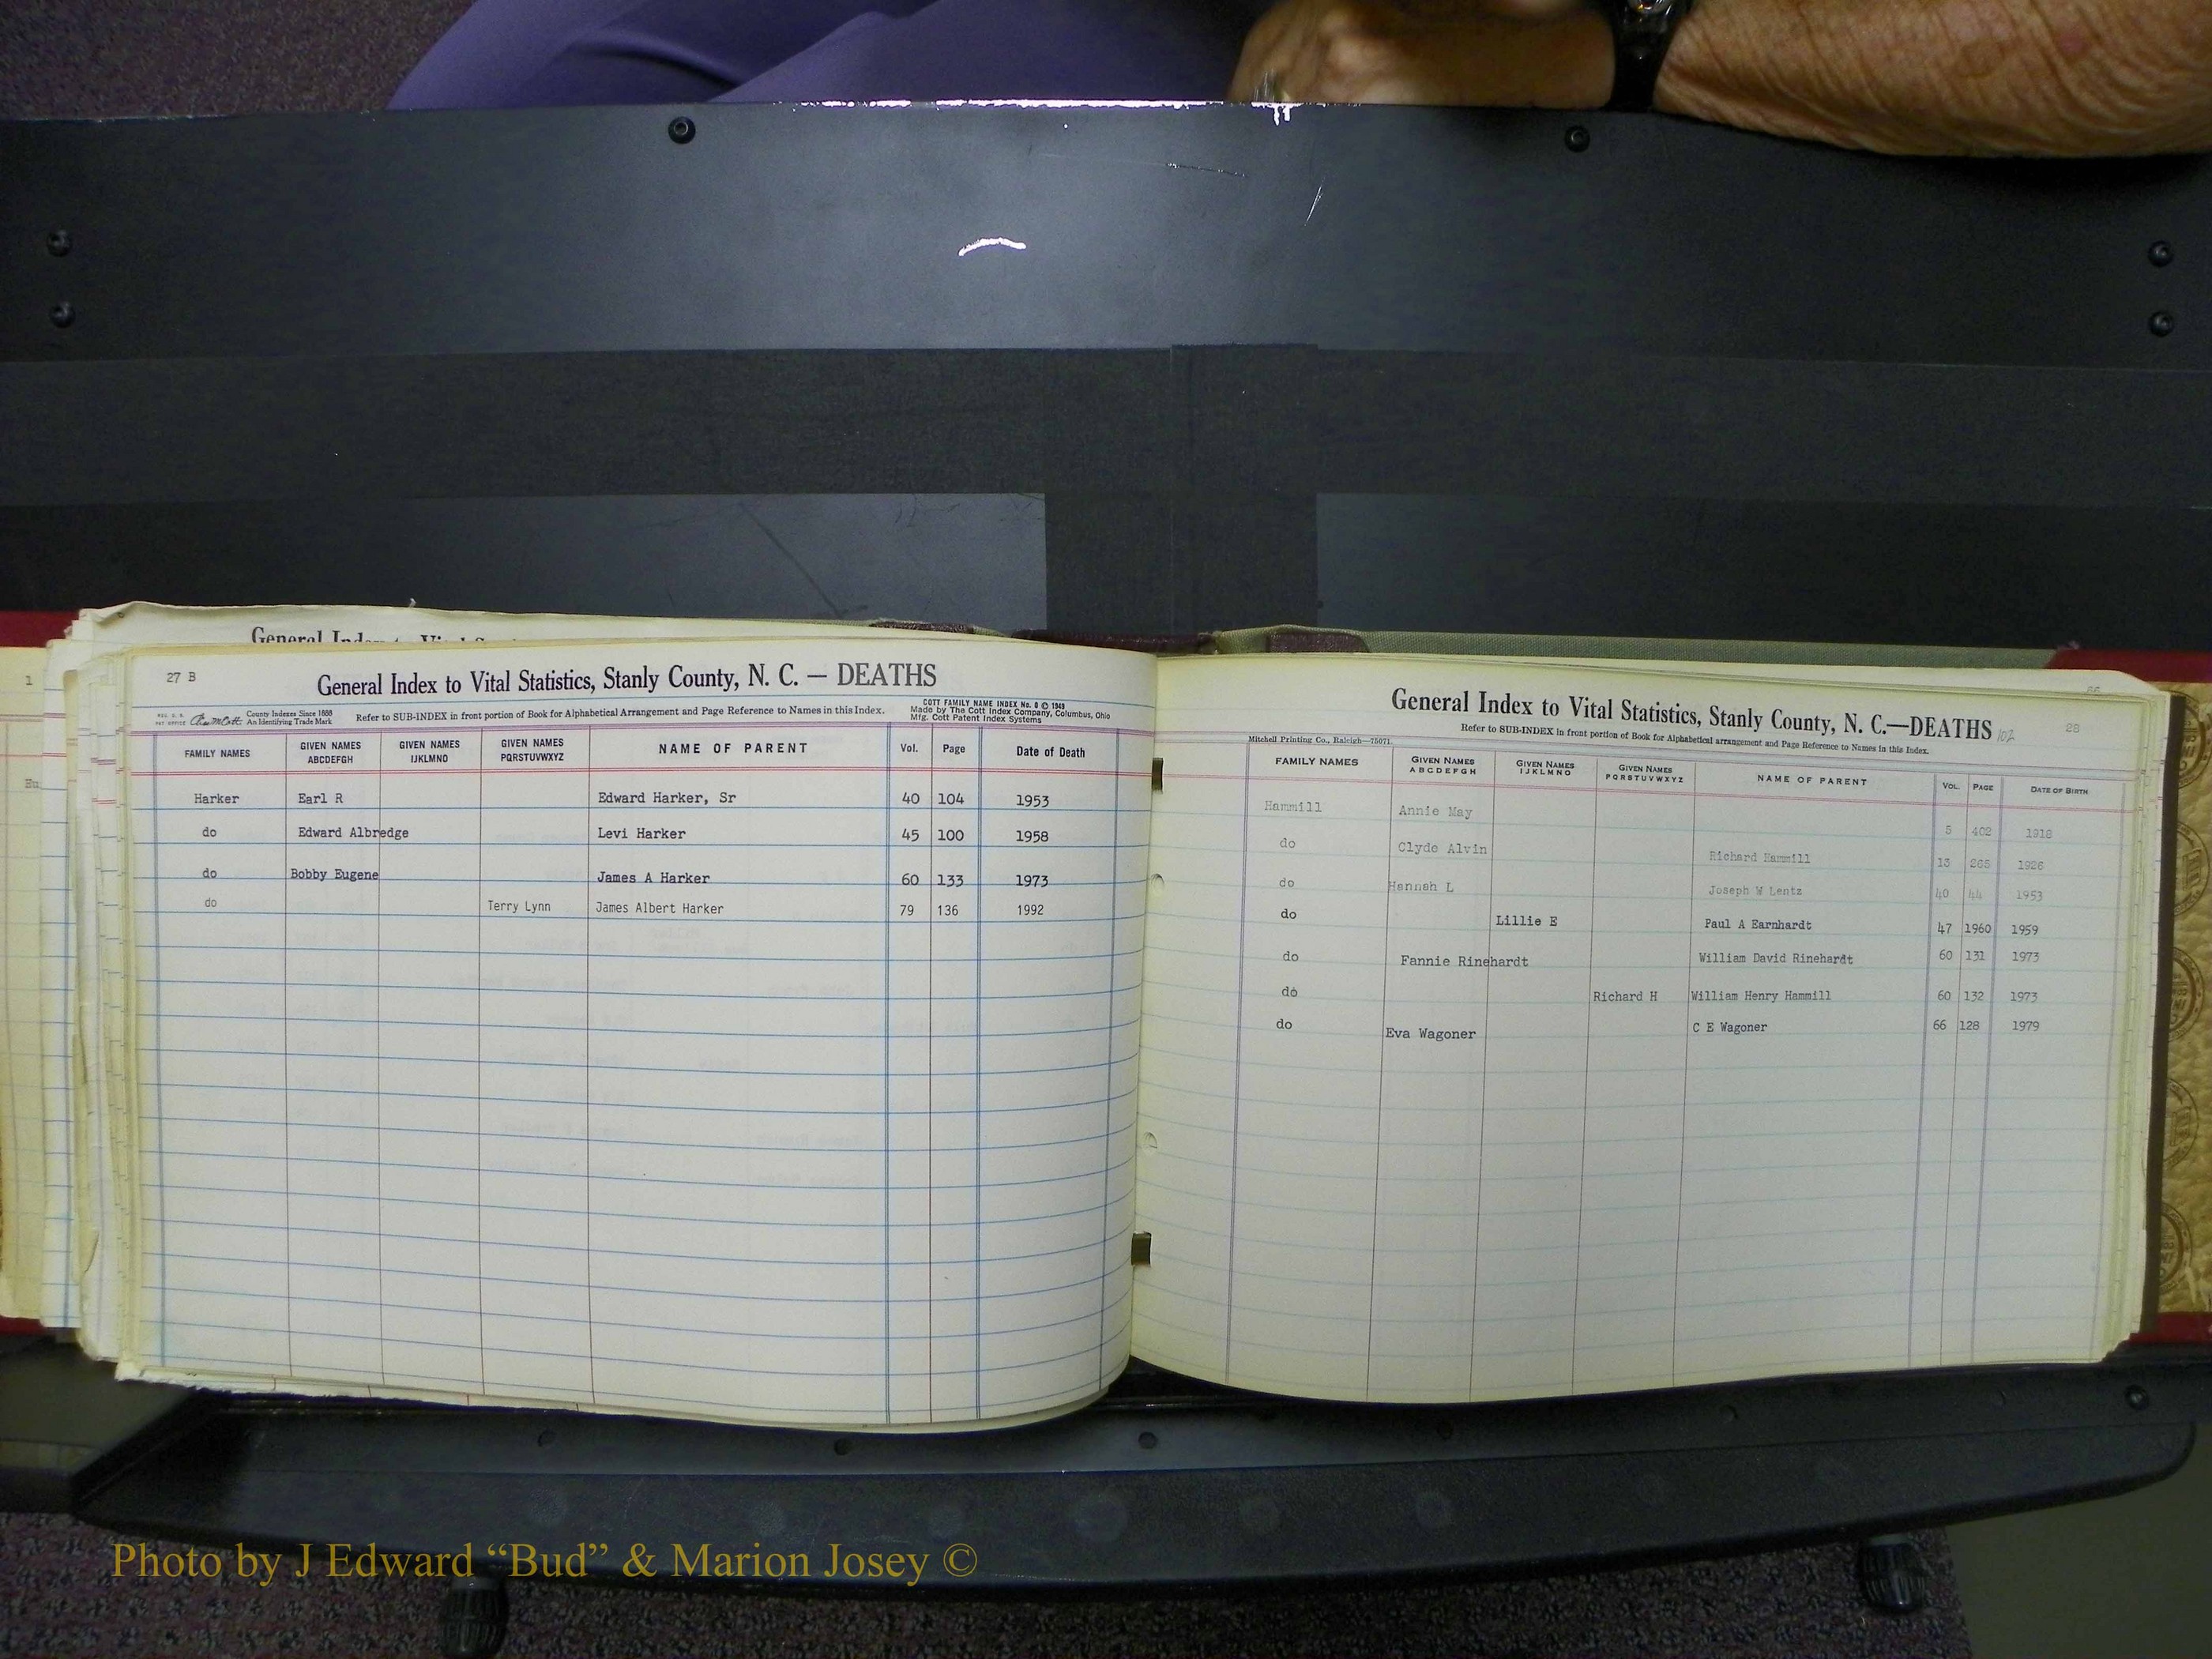 General Index to Vital S
1
Hu
27 B
General Index to Vital Statistics, Stanly County, N. C. — DEATHS
County Indexes Since 1888
An Identifying Trade Mark
Refer to SUB-INDEX in front portion of Book for Alphabetical Arrangement and Page Reference to Names in this Index.
COTT FAMILY NAME INDEX No. 8 © 1949
Made by The Cott Index Company, Columbus, Ohio
Mfg. Cott Patent Index Systems
FAMILY NAMES GIVEN NAMES ABCDEFGH GIVEN NAMES IJKLMNO GIVEN NAMES PQRSTUVWXYZ NAME OF PARENT Vol. Page Date of Death
Harker Earl R Edward Harker, Sr 40 104 1953
do Edward Albredge Levi Harker 45 100 1958
do Bobby Eugene James A Harker 60 133 1973
do Terry Lynn James Albert Harker 79 136 1992
General Index to Vital Statistics, Stanly County, N. C.—DEATHS 102 28
Refer to SUB-INDEX in front portion of Book for Alphabetical arrangement and Page Reference to Names in this Index.
Mitchell Printing Co., Raleigh—75071
FAMILY NAMES GIVEN NAMES ABCDEFGH GIVEN NAMES IJKLMNO GIVEN NAMES PQRSTUVWXYZ NAME OF PARENT VOL. PAGE DATE OF BIRTH
Hammill Annie May 5 402 1918
do Clyde Alvin Richard Hammill 13 265 1926
do Hannah L Joseph W Lentz 40 44 1953
do Lillie E Paul A Earnhardt 47 1960 1959
do Fannie Rinehardt William David Rinehardt 60 131 1973
do Richard H William Henry Hammill 60 132 1973
do Eva Wagoner C E Wagoner 66 128 1979
Photo by J Edward “Bud” & Marion Josey ©